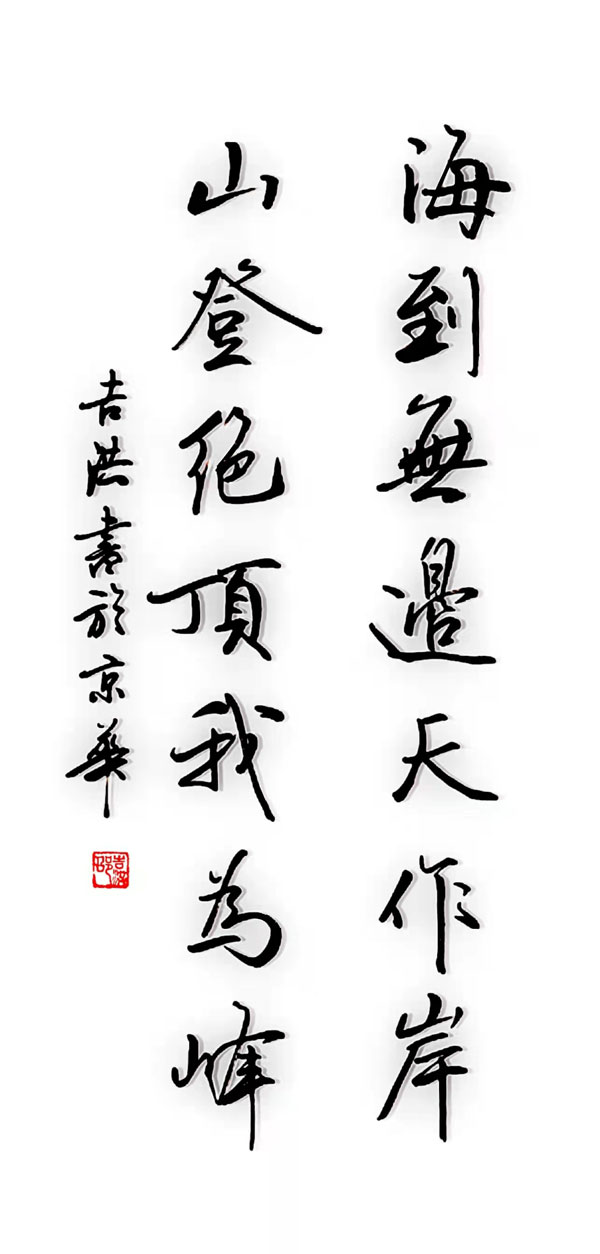 海到無邊天作岸
山登絕頂我為峰
吉洪書於京華